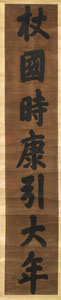 杖國時康引大年